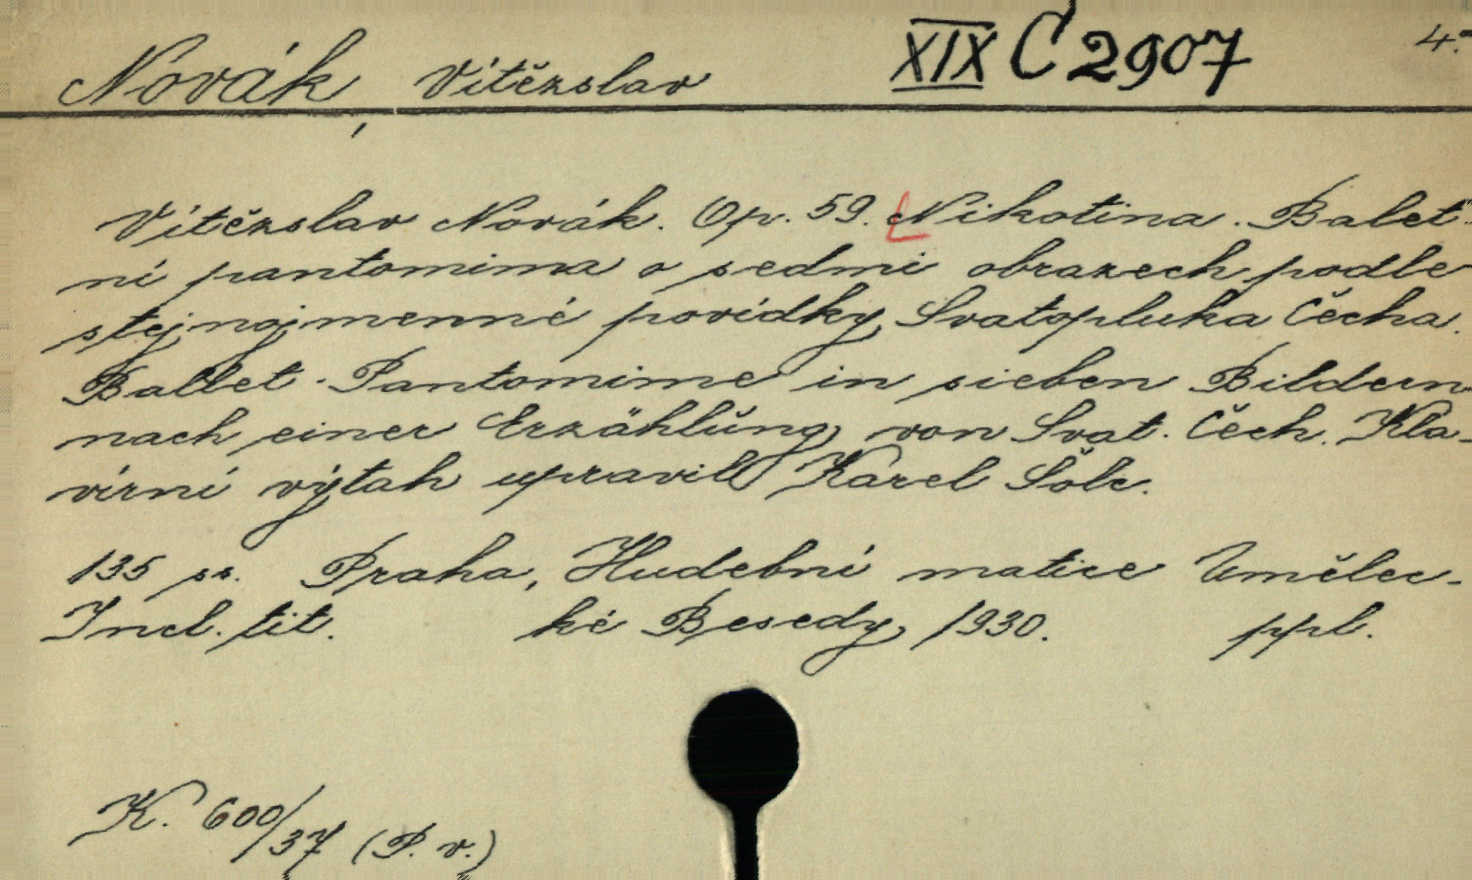 Novák, Vítězslav XIX C 2907 4°
Vítězslav Novák. Op. 59. Nikotina. Balet-
ní pantomima o sedmi obrazech podle
stejnojmenné povídky Svatopluka Čecha.
Ballet-Pantomime in sieben Bildern
nach einer Erzählŭng von Svat. Čech. Kla-
vírní výtah upravil Karel Šolc.
135 ss. Praha, Hudební matice Umělec-
Incl. tit. ké Besedy, 1930. ppl.
K. 600/37 (P. v.)